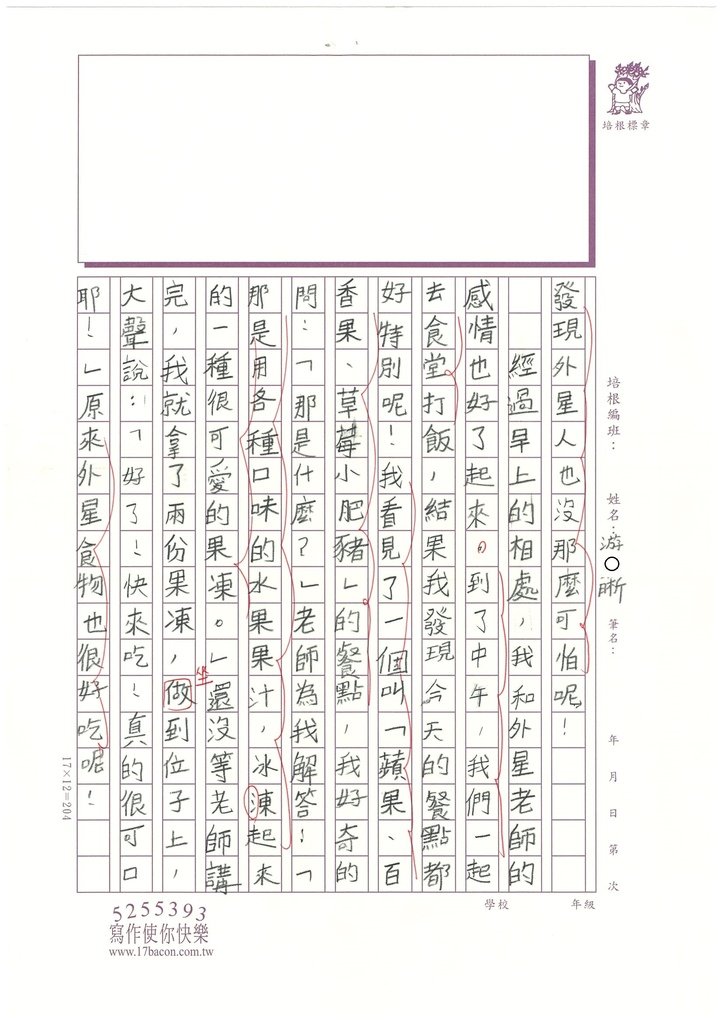 培根標章
培根編班：
姓名：游○晰
筆名：
年 月 日 第 次
學校 年級
發現外星人也沒那麼可怕呢！
經過早上的相處，我和外星老師的
感情也好了起來。到了中午，我們一起
去食堂打飯，結果我發現今天的餐點都
好特別呢！我看見了一個叫「蘋果、百
香果、草莓小肥豬」的餐點，我好奇的
問：「那是什麼？」老師為我解答：「
那是用各種口味的水果果汁，冰涷起來
的一種很可愛的果凍。」還沒等老師講
完，我就拿了兩份果凍，做到位子上，
坐
大聲說：「好了！快來吃！真的很可口
耶！」原來外星食物也很好吃呢！
17×12=204
5255393
寫作使你快樂
www.17bacon.com.tw